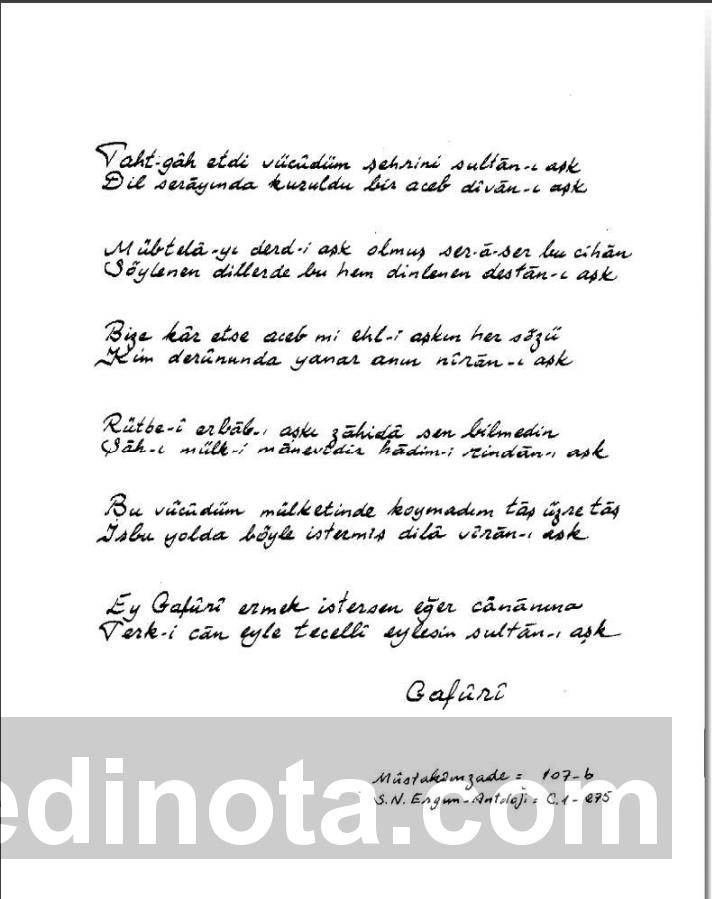 Taht-gâh etdi vücûdüm şehrini sultān-ı aşk
Dil serāyında kuruldu bir aceb dîvān-ı aşk
Mübtelā-yı derd-i aşk olmuş ser-ā-ser bu cihān
Söylenen dillerde bu hem dinlenen destān-ı aşk
Bize kâr etse aceb mi ehl-i aşkın her sözü
Kim derûnunda yanar anın nîrān-ı aşk
Rütbe-î erbāb-ı aşkı zāhidā sen bilmedin
Şāh-ı mülk-i mānevîdir hādim-i rindān-ı aşk
Bu vücûdüm mülketinde koymadım tāş üzre tāş
İşbu yolda böyle istermiş dilâ vîrān-ı aşk
Ey Gafûrî ermek istersen eğer cānānına
Terk-i cān eyle tecellî eylesin sultān-ı aşk
Gafûrî
Müstakîmzade = 107-b
S.N. Ergun-Antoloji = C.1- 275
edinota.com